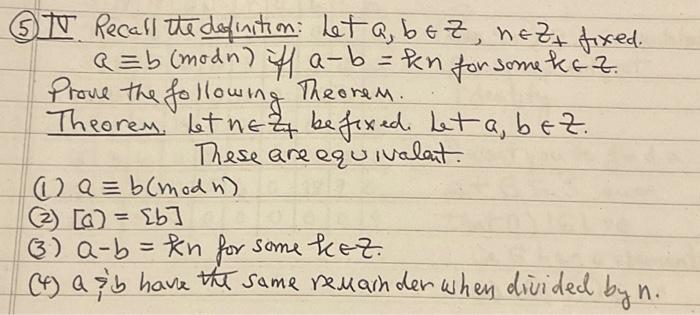 ⑤ IV Recall the definition: Let a, b ∈ Z, n ∈ Z₊ fixed.
a ≡ b (mod n) iff a - b = kn for some k ∈ Z.
Prove the following Theorem.
Theorem. Let n ∈ Z₊ be fixed. Let a, b ∈ Z.
These are equivalent.
(1) a ≡ b (mod n)
(2) [a] = [b]
(3) a - b = kn for some k ∈ Z.
(4) a & b have the same remainder when divided by n.